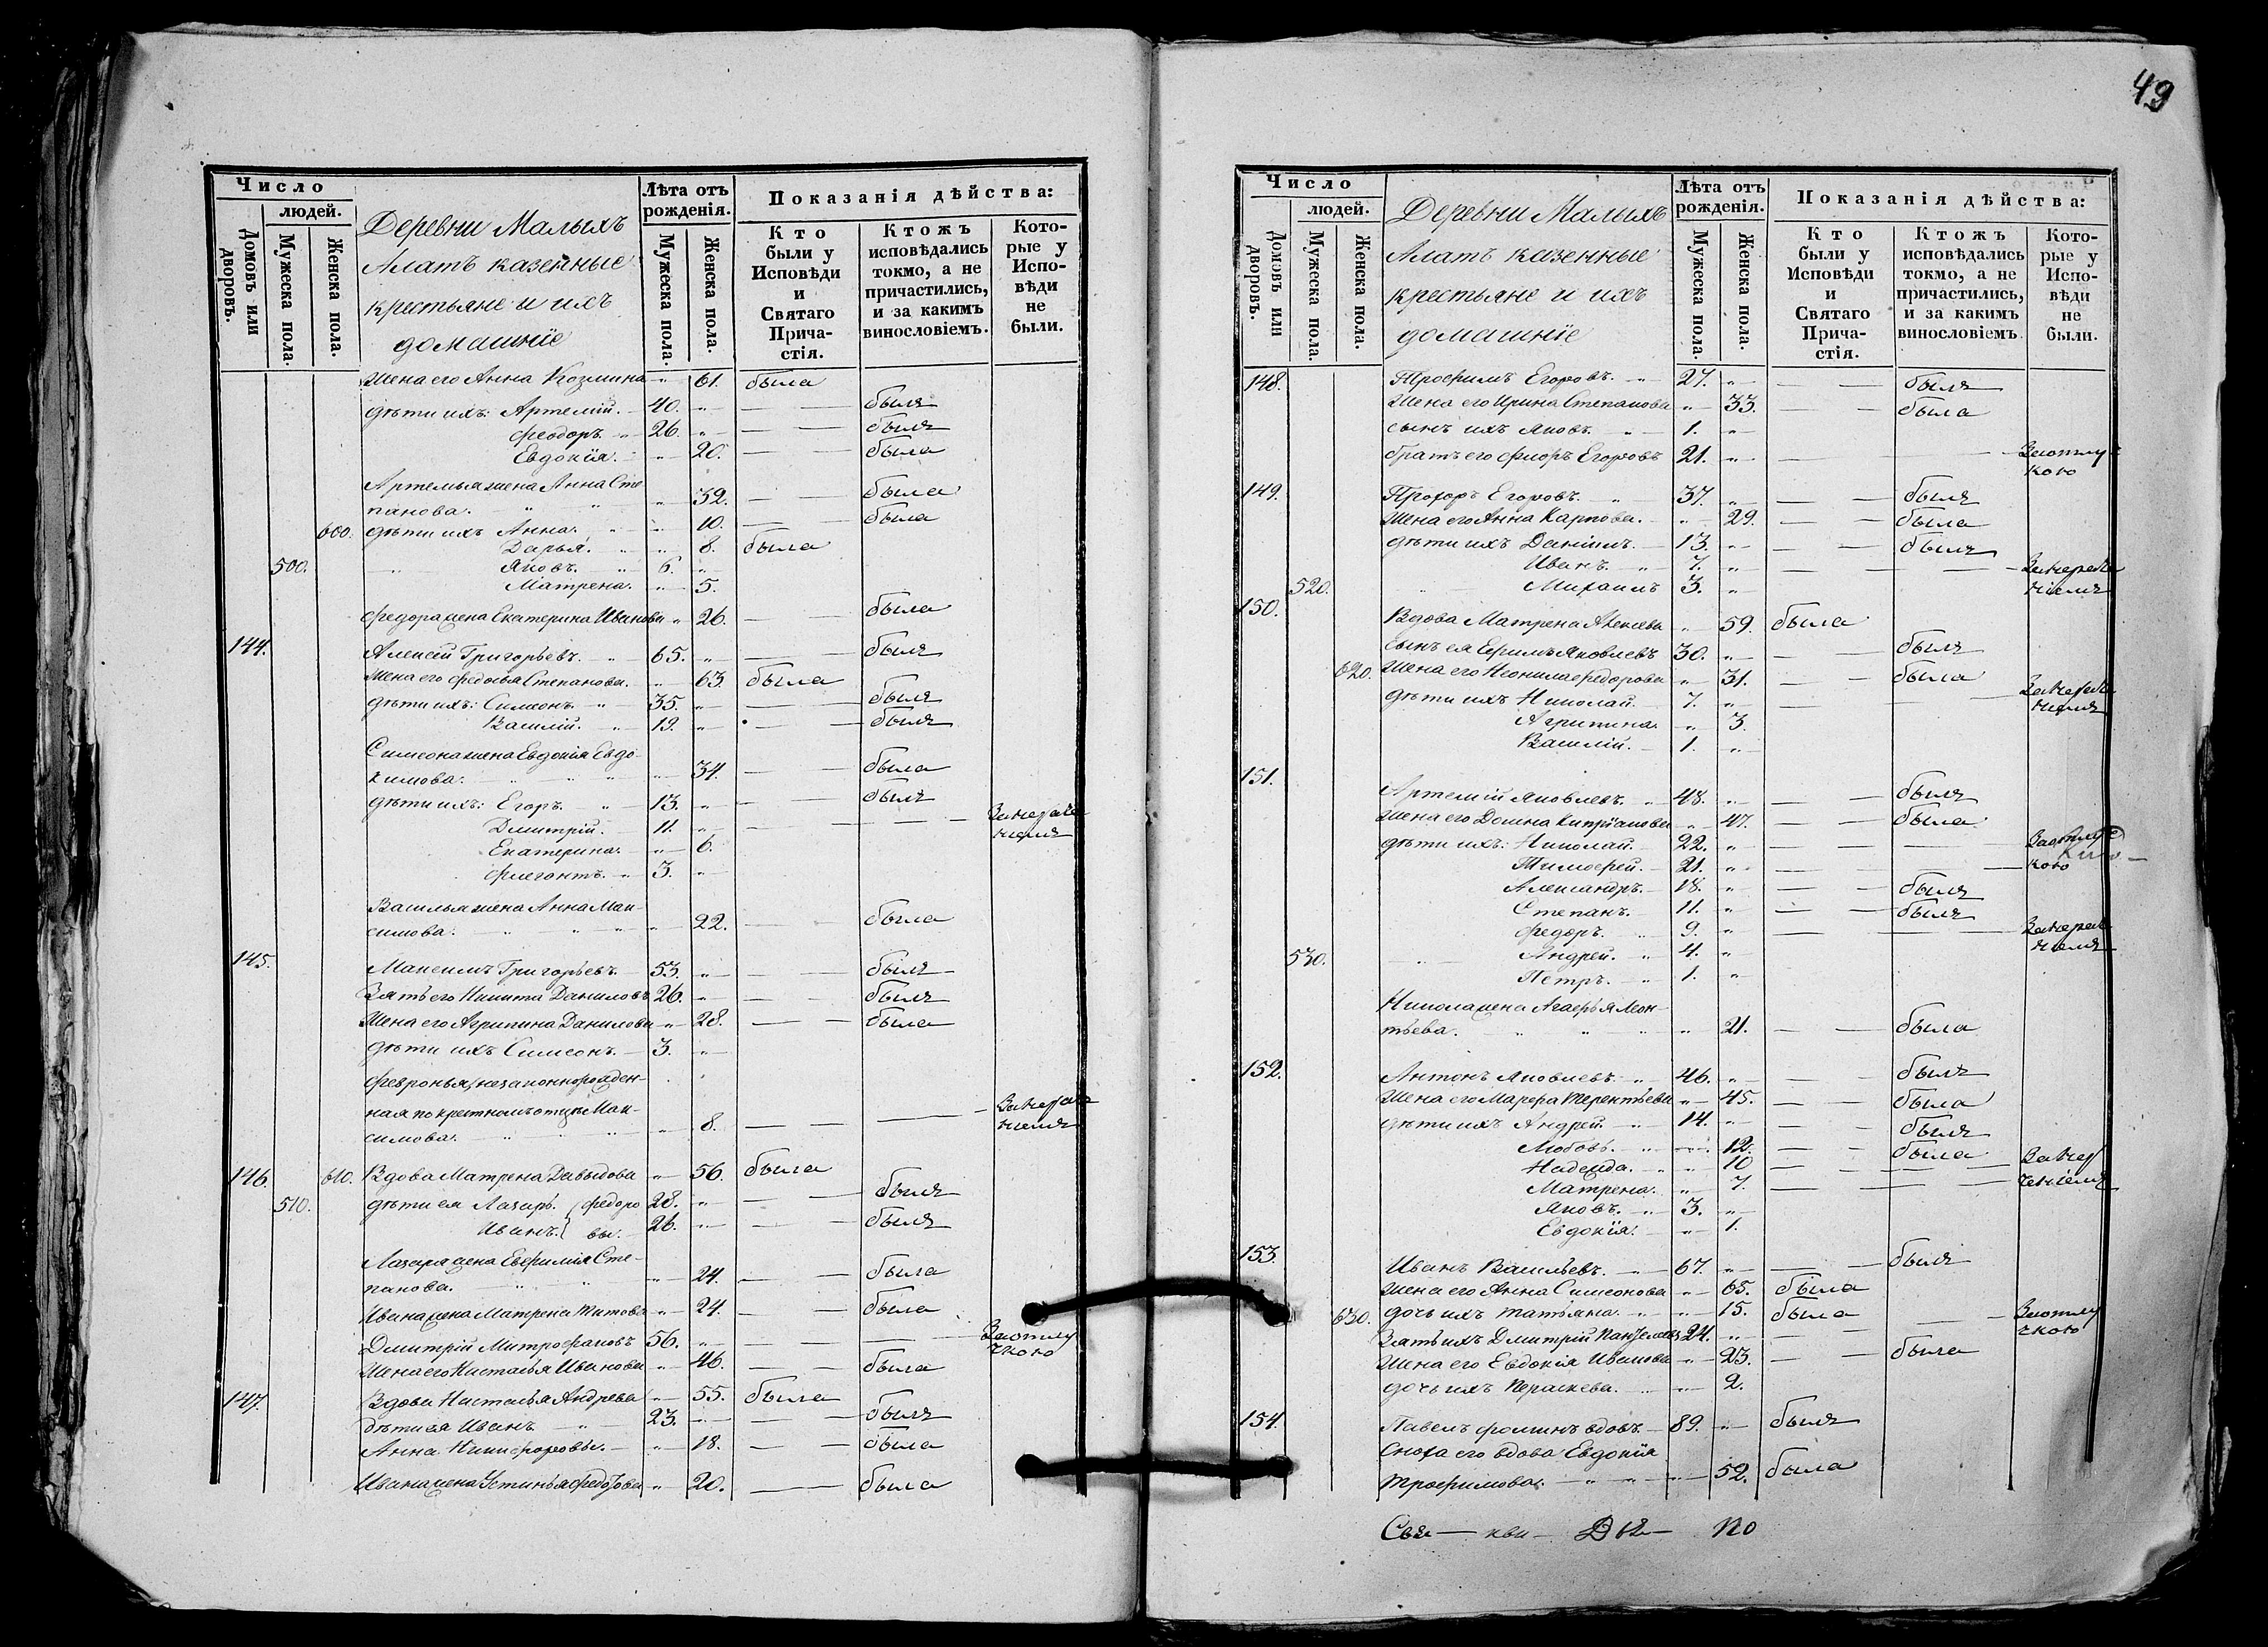 49
Число
людей.
Домовъ или дворовъ.
Мужеска пола.
Женска пола.
Деревни Малыхъ
Алатъ казенные
крестьяне и ихъ
домашніе
Лѣта отъ
рожденія.
Мужеска пола.
Женска пола.
Показанія дѣйства:
Кто
были у
Исповѣди
и
Святаго
Прича-
стія.
Ктожъ
исповѣдались
токмо, а не
причастились,
и за какимъ
винословіемъ.
Кото-
рые у
Испо-
вѣди
не
были.
Жена его Анна Козмина " 61. была
дѣти ихъ: Артемій. 40. " былъ
Феодоръ. 26. " былъ
Евдокія. " 20. была
Артемья жена Анна Сте
панова. " 32. была
600. дѣти ихъ Анна. " 10. была
Дарья. " 8. была
500. Яковъ. 6. "
Матрена. " 5.
Федора жена Екатерина Иванова " 26. была
144. Алексей Григорьевъ. 65. " былъ
Жена его Федосья Степанова. " 63. была
дѣти ихъ: Симеонъ. 35. " былъ
Василій. 19. " былъ
Симеона жена Евдокія Евдо
кимова. " 34. была
дѣти ихъ: Егоръ. 13. " былъ
Дмитрій. 11. "
Екатерина. " 6.
Флегонтъ. 3. "
Василья жена Анна Мак-
симова. " 22. была
145. Максимъ Григорьевъ. 53. " былъ
Зять его Никита Даниловъ 26. " былъ
Жена его Агрипина Данилова " 28. была
дѣти ихъ Симеонъ. 3. "
Февронья незаконнорожден-
ная по крестномъ отцѣ Мак-
симова. " 8.
146. 610. Вдова Матрена Давыдова " 56. была
510. дѣти ея Лазарь. Федоро 28. " былъ
Иванъ. вы. 26. " былъ
Лазаря жена Евфимія Сте-
панова. " 24. была
Ивана жена Матрена Титова " 24. была
Дмитрій Митрофановъ 56. " Заотлу
чкою
Жена его Насталья Иванова " 46. была
147. Вдова Насталья Андреева " 55. была
Дѣти ея Иванъ 23. " былъ
Анна Никифоровы. " 18. была
Ивана жена Устинья Федотова " 20. была
Число
людей.
Домовъ или дворовъ.
Мужеска пола.
Женска пола.
Деревни Малыхъ
Алатъ казенные
крестьяне и ихъ
домашніе
Лѣта отъ
рожденія.
Мужеска пола.
Женска пола.
Показанія дѣйства:
Кто
были у
Исповѣди
и
Святаго
Прича-
стія.
Ктожъ
исповѣдались
токмо, а не
причастились,
и за какимъ
винословіемъ.
Кото-
рые у
Испо-
вѣди
не
были.
148. Трофимъ Егоровъ. 27. " былъ
Жена его Ирина Степанова " 33. была
сынъ ихъ Яковъ. 1. "
братъ его Флоръ Егоровъ 21. "
кою
149. Прохоръ Егоровъ. 37. " былъ
Жена его Анна Карпова. " 29. была
дѣти ихъ Даніилъ. 13. " былъ
Иванъ. 7. "
520. Михаилъ 3. "
150. Вдова Матрена Алексева " 59. была
Сынъ ея Ефимъ Яковлевъ 30. " былъ
620. Жена его Неонила Федорова " 31. была
дѣти ихъ Николай. 7. "
Агрипина. " 3.
Василій. 1. "
151. Артемій Яковлевъ. 48. " былъ
Жена его Домна Кипріанова " 47. была
дѣти ихъ: Николай. 22. "
Тимофей. 21. " кою
Александръ. 18. " былъ
Степанъ. 11. " былъ
Федоръ. 9. "
530. Андрей. 4. "
Петръ. 1. "
Николая жена Агафья Леон-
тьева. " 21. была
152. Антонъ Яковлевъ. 46. " былъ
Жена его Марфа Терентьева " 45. была
дѣти ихъ Андрей. 14. " былъ
Любовь. " 12. была
Надежда. " 10
Матрена. " 7.
Яковъ. 3. "
Евдокія. " 1.
153. Иванъ Васильевъ. 67. " былъ
Жена его Анна Симеонова " 65. была
630. дочь ихъ Татьяна. " 15. была
Зять ихъ Дмитрій 24. " Заотлу
чкою
Жена его Евдокія Иванова " 23. была
дочь ихъ Параскева. " 2.
154. Павелъ Фоминъ вдовъ. 89. " былъ
Сноха его вдова Евдокія
Трофимова. " 52. была